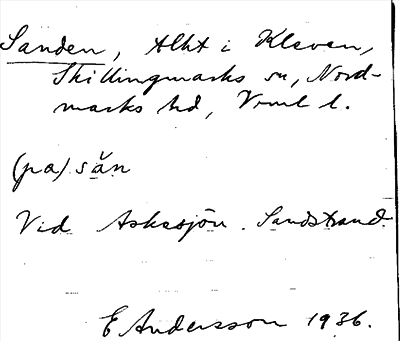 Sanden, Alht i Kleven,
Skillingmarks sn, Nord-
marks hd, Vrml l.
(pa) săn
Vid Askesjön. Sandstrand.
E Andersson 1936.